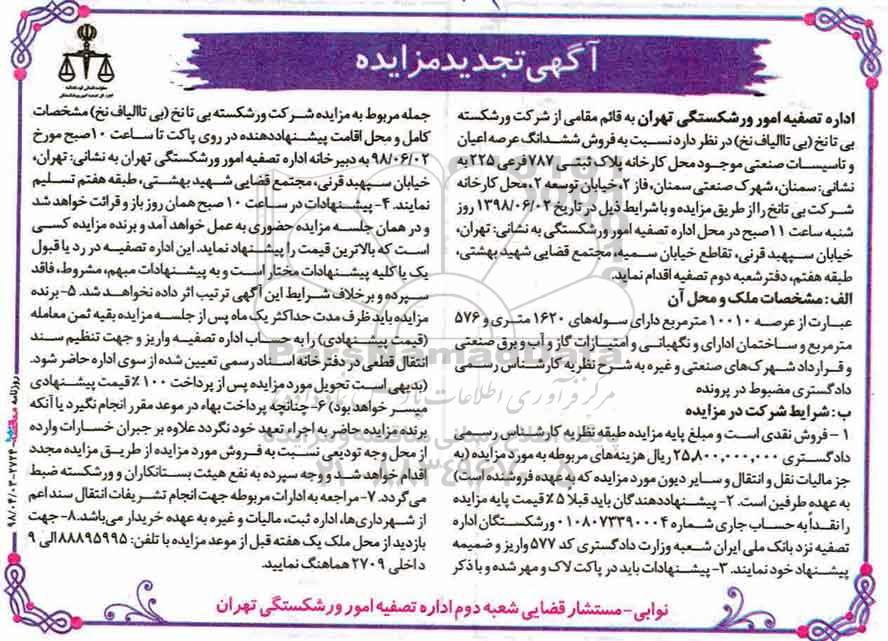 آگهی تجدید مزایده
اداره تصفیه امور ورشکستگی تهران به قائم مقامی از شرکت ورشکسته
بی تا نخ (بی تاالیاف نخ) در نظر دارد نسبت به فروش ششدانگ عرصه اعیان
و تاسیسات صنعتی موجود محل کارخانه پلاک ثبتی ۷۸۷ فرعی ۲۲۵ به
نشانی: سمنان، شهرک صنعتی سمنان، فاز ۲، خیابان توسعه ۲، محل کارخانه
شرکت بی تانخ را از طریق مزایده و با شرایط ذیل در تاریخ ۱۳۹۸/۰۶/۰۲ روز
شنبه ساعت ۱۱ صبح در محل اداره تصفیه امور ورشکستگی به نشانی: تهران،
خیابان سپهبد قرنی، تقاطع خیابان سمیه، مجتمع قضایی شهید بهشتی،
طبقه هفتم، دفتر شعبه دوم تصفیه اقدام نماید.
الف: مشخصات ملک و محل آن
عبارت از عرصه ۱۰۰۱۰ مترمربع دارای سوله‌های ۱۶۲۰ متری و ۵۷۶
مترمربع و ساختمان ادارای و نگهبانی و امتیازات گاز و آب و برق صنعتی
و قرارداد شهرک‌های صنعتی و غیره به شرح نظریه کارشناس رسمی
دادگستری مضبوط در پرونده
ب: شرایط شرکت در مزایده
۱ - فروش نقدی است و مبلغ پایه مزایده طبقه نظریه کارشناس رسمی
دادگستری ۲۵,۸۰۰,۰۰۰,۰۰۰ ریال هزینه‌های مربوطه به مورد مزایده (به
جز مالیات نقل و انتقال و سایر دیون مورد مزایده که به عهده فروشنده است)
به عهده طرفین است. ۲- پیشنهاددهندگان باید قبلا ۵٪ قیمت پایه مزایده
را نقداً به حساب جاری شماره ۰۱۰۸۰۷۳۳۹۰۰۰۴ ورشکستگان اداره
تصفیه نزد بانک ملی ایران شعبه وزارت دادگستری کد ۵۷۷ واریز و ضمیمه
پیشنهاد خود نمایند. ۳- پیشنهادات باید در پاکت لاک و مهر شده و با ذکر
جمله مربوط به مزایده شرکت ورشکسته بی تا نخ (بی تاالیاف نخ) مشخصات
کامل و محل اقامت پیشنهاددهنده در روی پاکت تا ساعت ۱۰ صبح مورخ
۹۸/۰۶/۰۲ به دبیرخانه اداره تصفیه امور ورشکستگی تهران به نشانی: تهران،
خیابان سپهبد قرنی، مجتمع قضایی شهید بهشتی، طبقه هفتم تسلیم
نمایند. ۴- پیشنهادات در ساعت ۱۰ صبح همان روز باز و قرائت خواهد شد
و در همان جلسه مزایده حضوری به عمل خواهد آمد و برنده مزایده کسی
است که بالاترین قیمت را پیشنهاد نماید. این اداره تصفیه در رد یا قبول
یک یا کلیه پیشنهادات مختار است و به پیشنهادات مبهم، مشروط، فاقد
سپرده و برخلاف شرایط این آگهی ترتیب اثر داده نخواهد شد. ۵- برنده
مزایده باید ظرف مدت حداکثر یک ماه پس از جلسه مزایده بقیه ثمن معامله
(قیمت پیشنهادی) را به حساب اداره تصفیه واریز و جهت تنظیم سند
انتقال قطعی در دفترخانه اسناد رسمی تعیین شده از سوی اداره حاضر شود.
(بدیهی است تحویل مورد مزایده پس از پرداخت ۱۰۰٪ قیمت پیشنهادی
میسر خواهد بود) ۶- چنانچه پرداخت بهاء در موعد مقرر انجام نگیرد یا آنکه
برنده مزایده حاضر به اجراء تعهد خود نگردد علاوه بر جبران خسارات وارده
از محل وجه تودیعی نسبت به فروش مورد مزایده از طریق مزایده مجدد
اقدام خواهد شد و وجه سپرده به نفع هیئت بستانکاران و ورشکسته ضبط
می‌گردد. ۷- مراجعه به ادارات مربوطه جهت انجام تشریفات انتقال سند اعم
از شهرداری‌ها، اداره ثبت، مالیات و غیره به عهده خریدار می‌باشد. ۸- جهت
بازدید از محل ملک یک هفته قبل از موعد مزایده با تلفن: ۸۸۸۹۵۹۹۵ الی ۹
داخلی ۲۷۰۹ هماهنگ نمایید.
نوابی - مستشار قضایی شعبه دوم اداره تصفیه امور ورشکستگی تهران
ParsNamadData
مرکز فرآوری اطلاعات پارس نماد داده‌ها
پایگاه اطلاع رسانی مناقصه و مزایده
۰۲۱-۸۸۳۴۹۶۷۰-۵